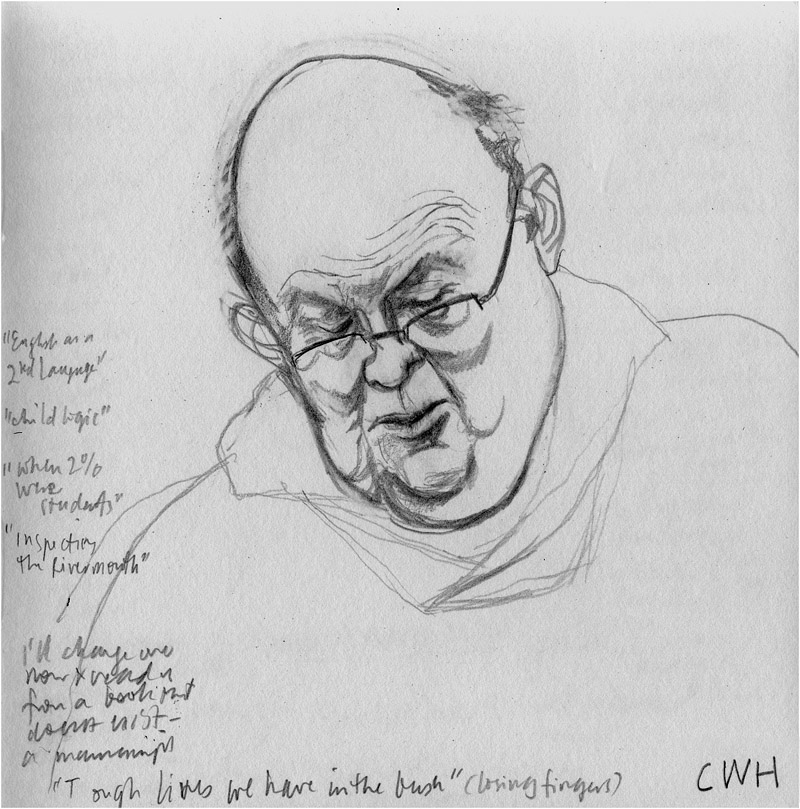 "English as a
2nd Language"
"child logic"
"when 2%
were
students"
"Inspecting
the Rivermouth"
I'll change gear
now & read
from a book that
doesn't exist –
a manuscript
"Tough lives we have in the bush" (losing fingers)
CWH